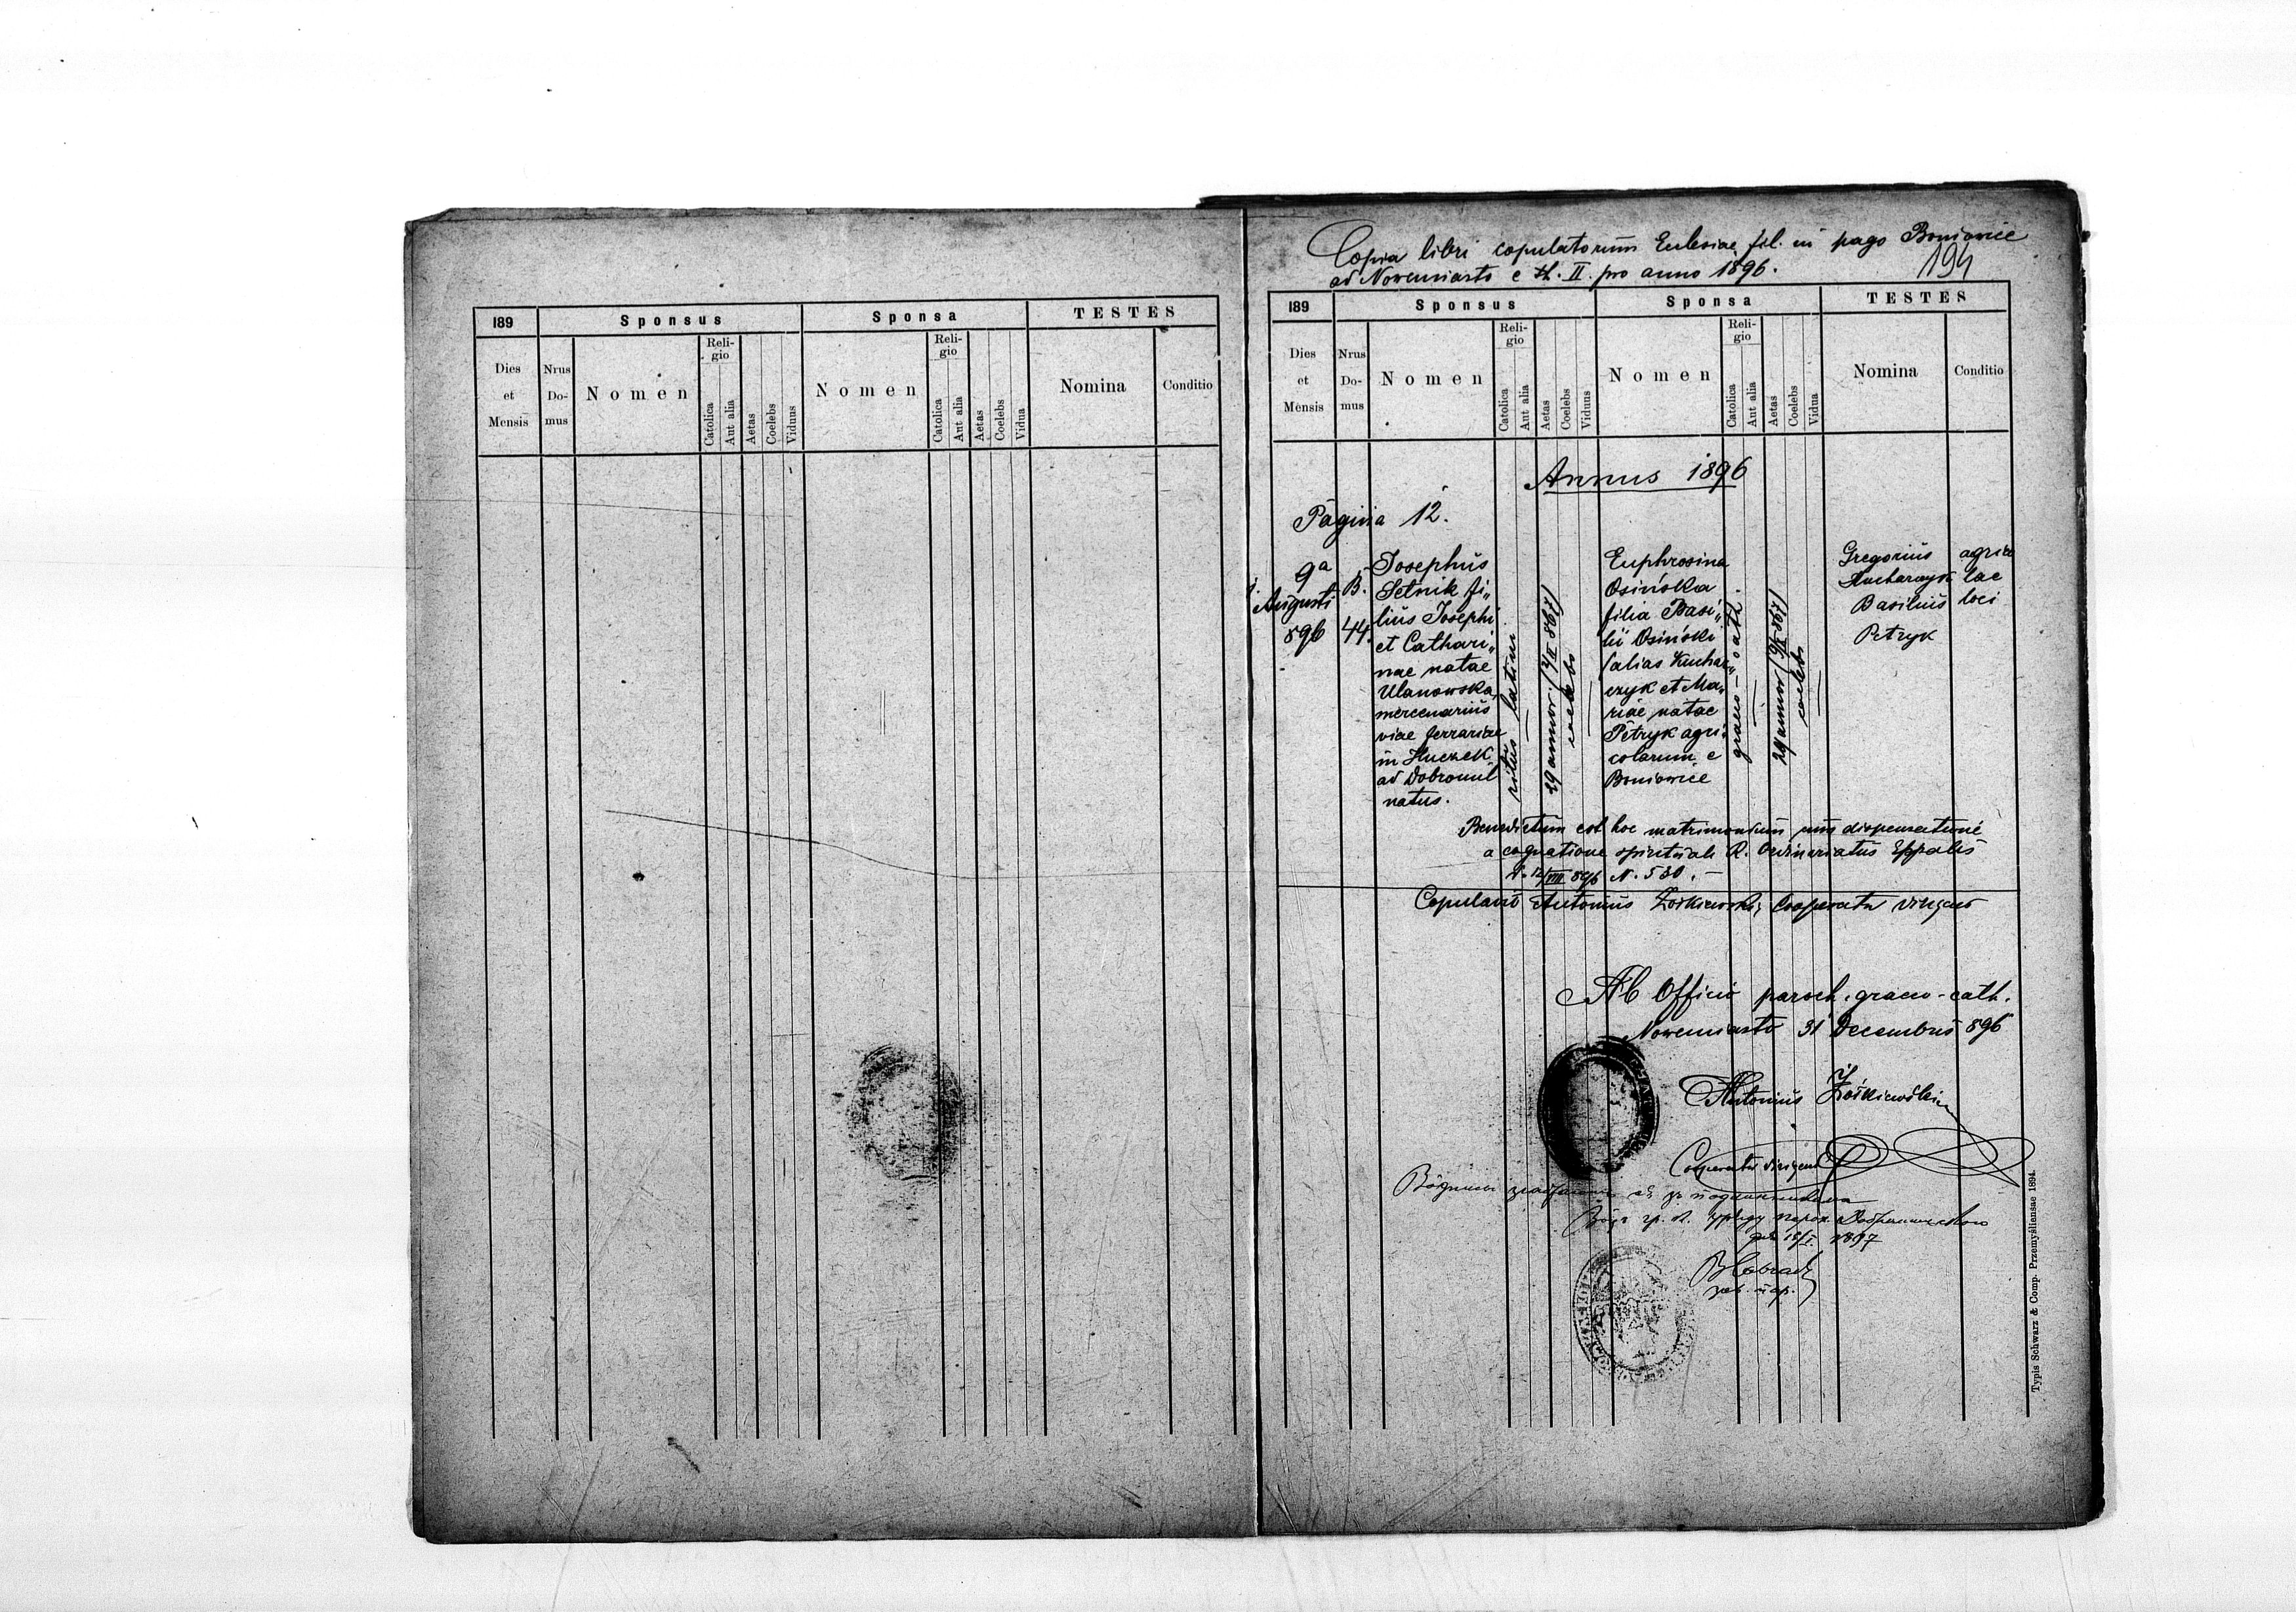 189
Sponsus
Sponsa
TESTES
Dies et Mensis
Nrus Domus
Nomen
Religio
Catolica
Aut alia
Aetas
Coelebs
Viduus
Nomen
Religio
Catolica
Aut alia
Aetas
Coelebs
Vidua
Nomina
Conditio
Copia libri copulatorum Eclesiae fil. in pago Boniowice
ad Nowemiasto e th. II. pro anno 1896.
194
189
Sponsus
Sponsa
TESTES
Dies et Mensis
Nrus Domus
Nomen
Religio
Catolica
Aut alia
Aetas
Coelebs
Viduus
Nomen
Religio
Catolica
Aut alia
Aetas
Coelebs
Vidua
Nomina
Conditio
Annus 1896
Pagina 12.
9a
Augusti
896
B.
44.
Josephus
Setnik fi„
lius Josephi
et Cathari„
nae natae
Ulanowska,
mercenarius
viae ferrariae
in Huczek
ad Dobromil
natus.
ritus latini
29 annor.
coelebs
Euphrosina
Osińska
filia Basi„
lii Osiński
(alias Kuchar„
czyk et Ma„
riae natae
Petryk agri„
colarum e
Boniowice
graeco-cath.
29 annor
coelebs
Gregorius
Kucharczyk
Basilius
Petryk
agrico
lae
loci
Benedictum est hoc matrimonium cum dispensatione
a cognatione spirituali R. Ordinariatus Eppalis
d. 12/VIII 896 N. 530.-
Copulavit Antonius Żoikiewski, Cooperator dirigens
Ab Officio paroch. graeco-cath.
Nowemiasto 31 Decembris 896
Antonius Żoikiewski
Cooperator dirigens
1897
Typis Schwarz & Comp. Przemyśliensae 1894.